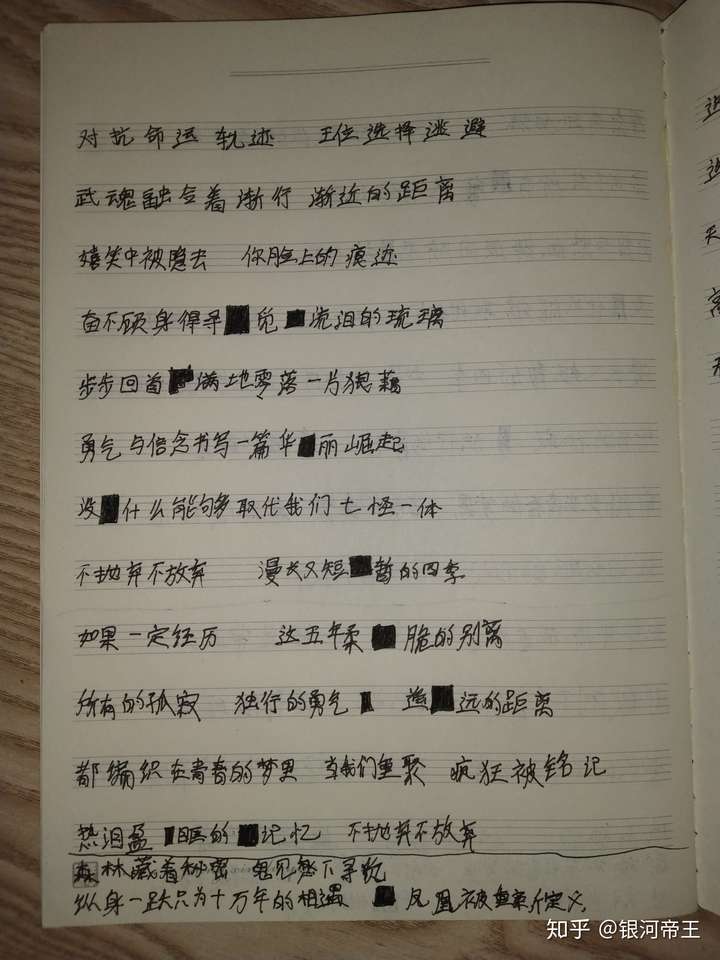 对抗命运 轨迹 王位选择逃避
武魂融合着渐行 渐近的距离
嬉笑中被隐去 你脸上的痕迹
奋不顾身得寻觅 流泪的琉璃
步步回首 满地零落一片狼藉
勇气与信念书写一篇华丽崛起
没什么能够取代我们七怪一体
不抛弃不放弃 漫长又短暂的四季
如果一定经历 这五年柔脆的别离
所有的孤寂 独行的勇气 遥远的距离
都编织在青春的梦里 当我们重聚 疯狂被铭记
热泪盈眶的记忆 不抛弃不放弃
森林藏着秘密 鬼见愁下寻觅
纵身一跃只为十万年的相遇 凤凰被重新定义
近
近
天
离
知乎 @银河帝王